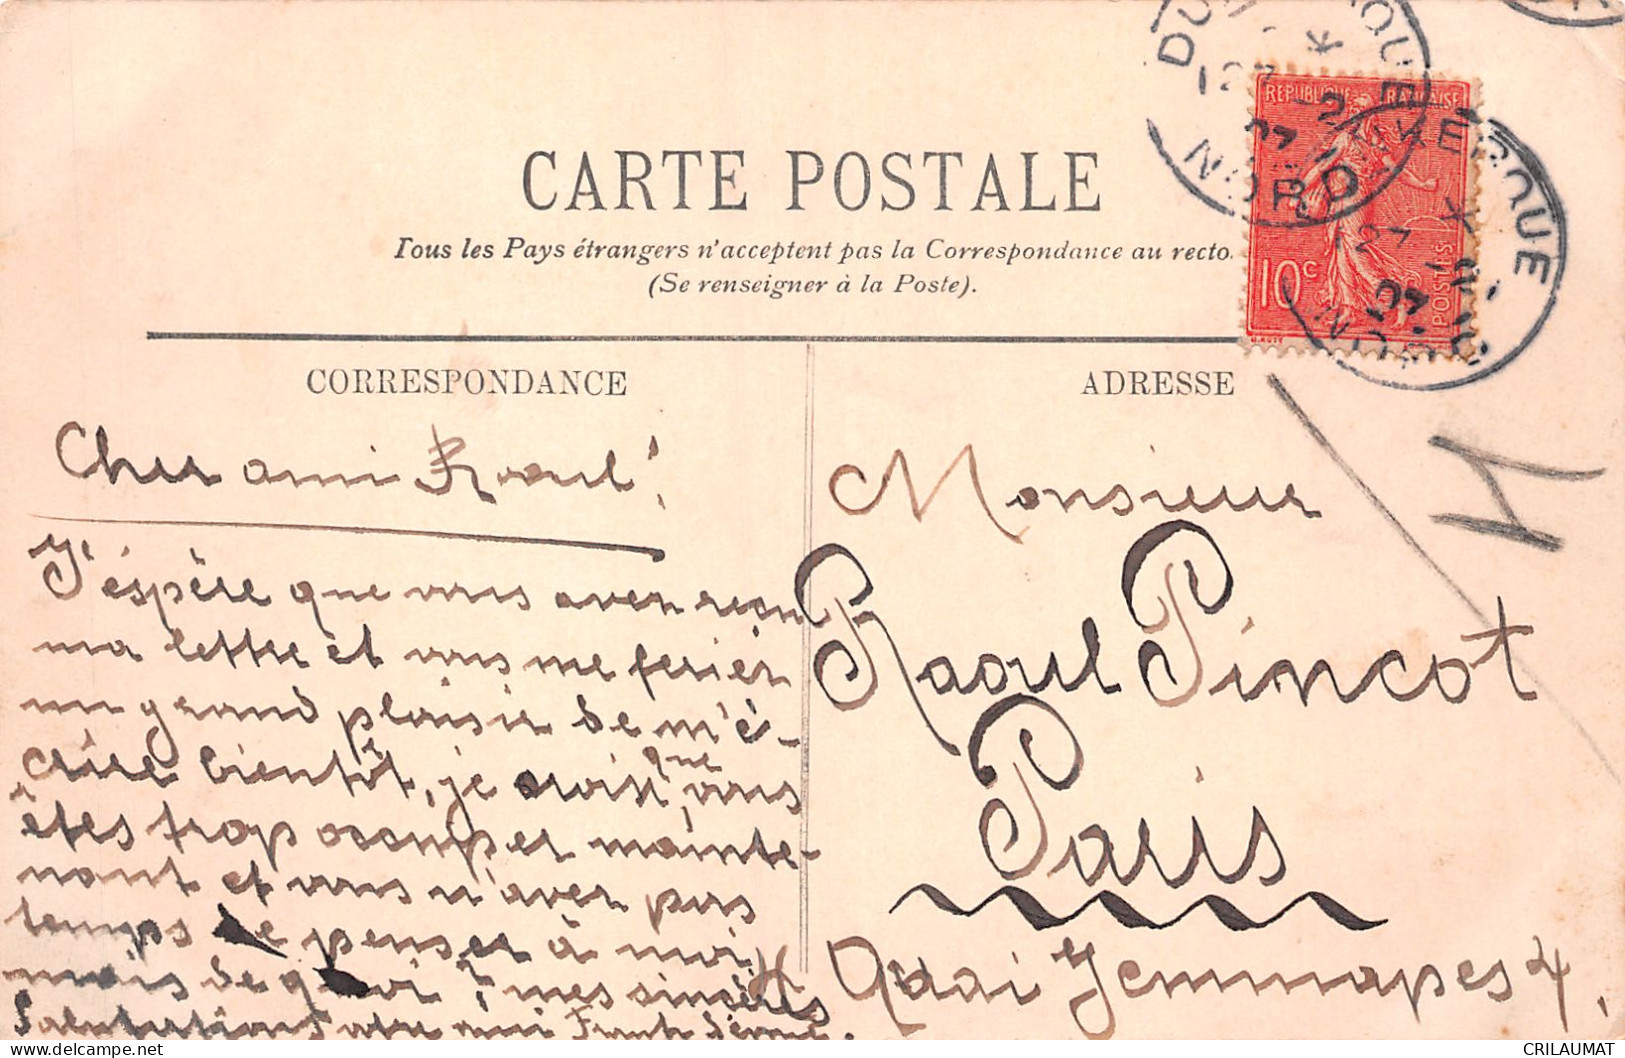 CARTE POSTALE
Tous les Pays étrangers n'acceptent pas la Correspondance au recto.
(Se renseigner à la Poste).
REPUBLIQUE FRANÇAISE
10c
POSTES
DUNKERQUE
NORD
DUNKERQUE
NORD
CORRESPONDANCE
ADRESSE
Cher ami Raoul!
J'éspère que vous avez reçu
ma lettre et vous me feriér
un grand plaisir de m'é-
crire bientôt, je crois que vous
êtes trop occuper mainte-
nant et vous n'aver pas
temps de penser à moi,
mais de quoi? mes sincères
Salutations votre ami
Monsieur
Raoul Pincot
Paris
Quai Jemmapes 4,
4
CRILAUMAT